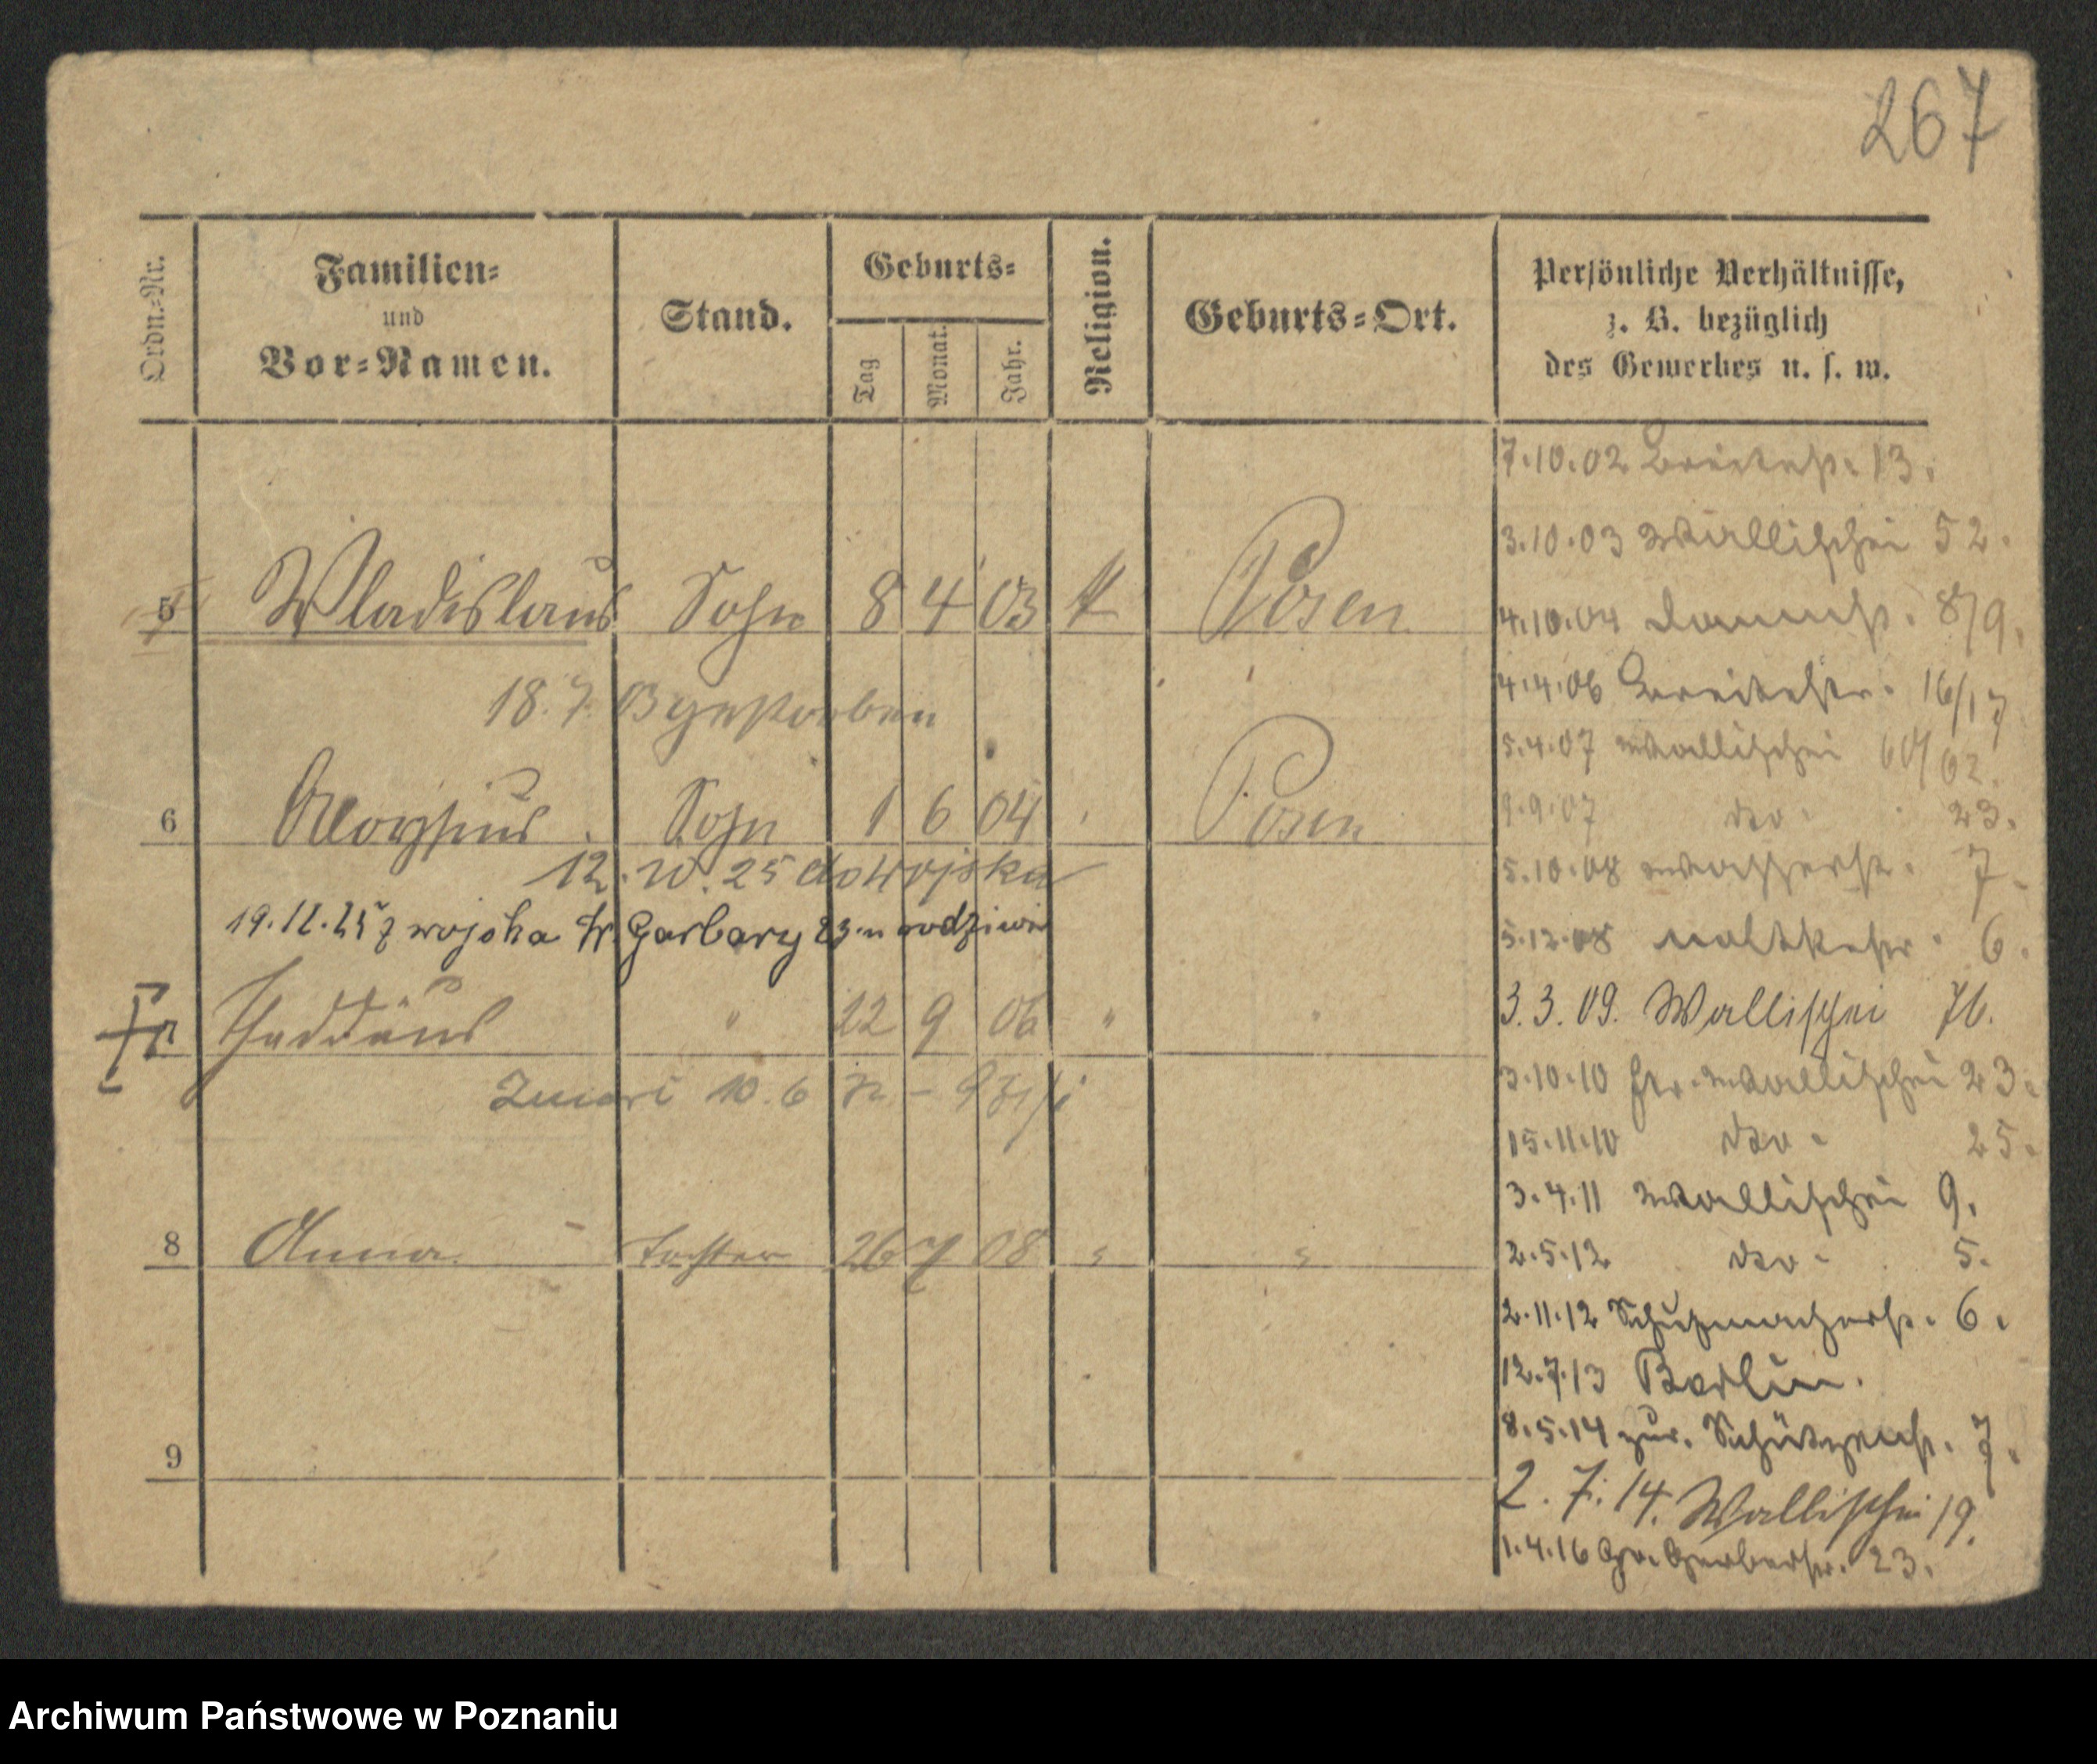 267
Ordn.=Nr.
Familien=
und
Vor=Namen.
Stand.
Geburts=
Tag
Monat.
Jahr.
Religion.
Geburts=Ort.
Persönliche Verhältnisse,
z. B. bezüglich
des Gewerbes u. s. w.
5 Wladislaus Sohn 8 4 03 K Posen
18. 7. 03 gestorben
6 Aloysius Sohn 1 6 04 Posen
12. 25 do wojska
19.12.25 z wojska W. Garbary 23 u rodziców
Thaddäus " 22 9 06 " "
10.6
8 Anna Tochter 26 7 08 " "
9
7.10.02 Breitestr. 13.
3.10.03 Wallischei 52.
4.10.04 Dammstr. 8/9.
4.4.06 Breitestr. 16/17
5.4.07 Wallischei 60/62.
9.9.07 dto. 23.
5.10.08 Wasserstr. 7.
5.12.08 Moltkestr. 6.
3.3.09. Wallischei 76.
3.10.10 Wallischei 23.
15.11.10 dto. 25.
3.4.11 Wallischei 9.
2.5.12 dto. 5.
2.11.12 Schuhmacherstr. 6.
12.7.13 Berlin.
8.5.14 zur. Schützenstr. 7.
2. 7. 14. Wallischei 19.
1.4.16 Gr. Gerberstr. 23.
Archiwum Państwowe w Poznaniu